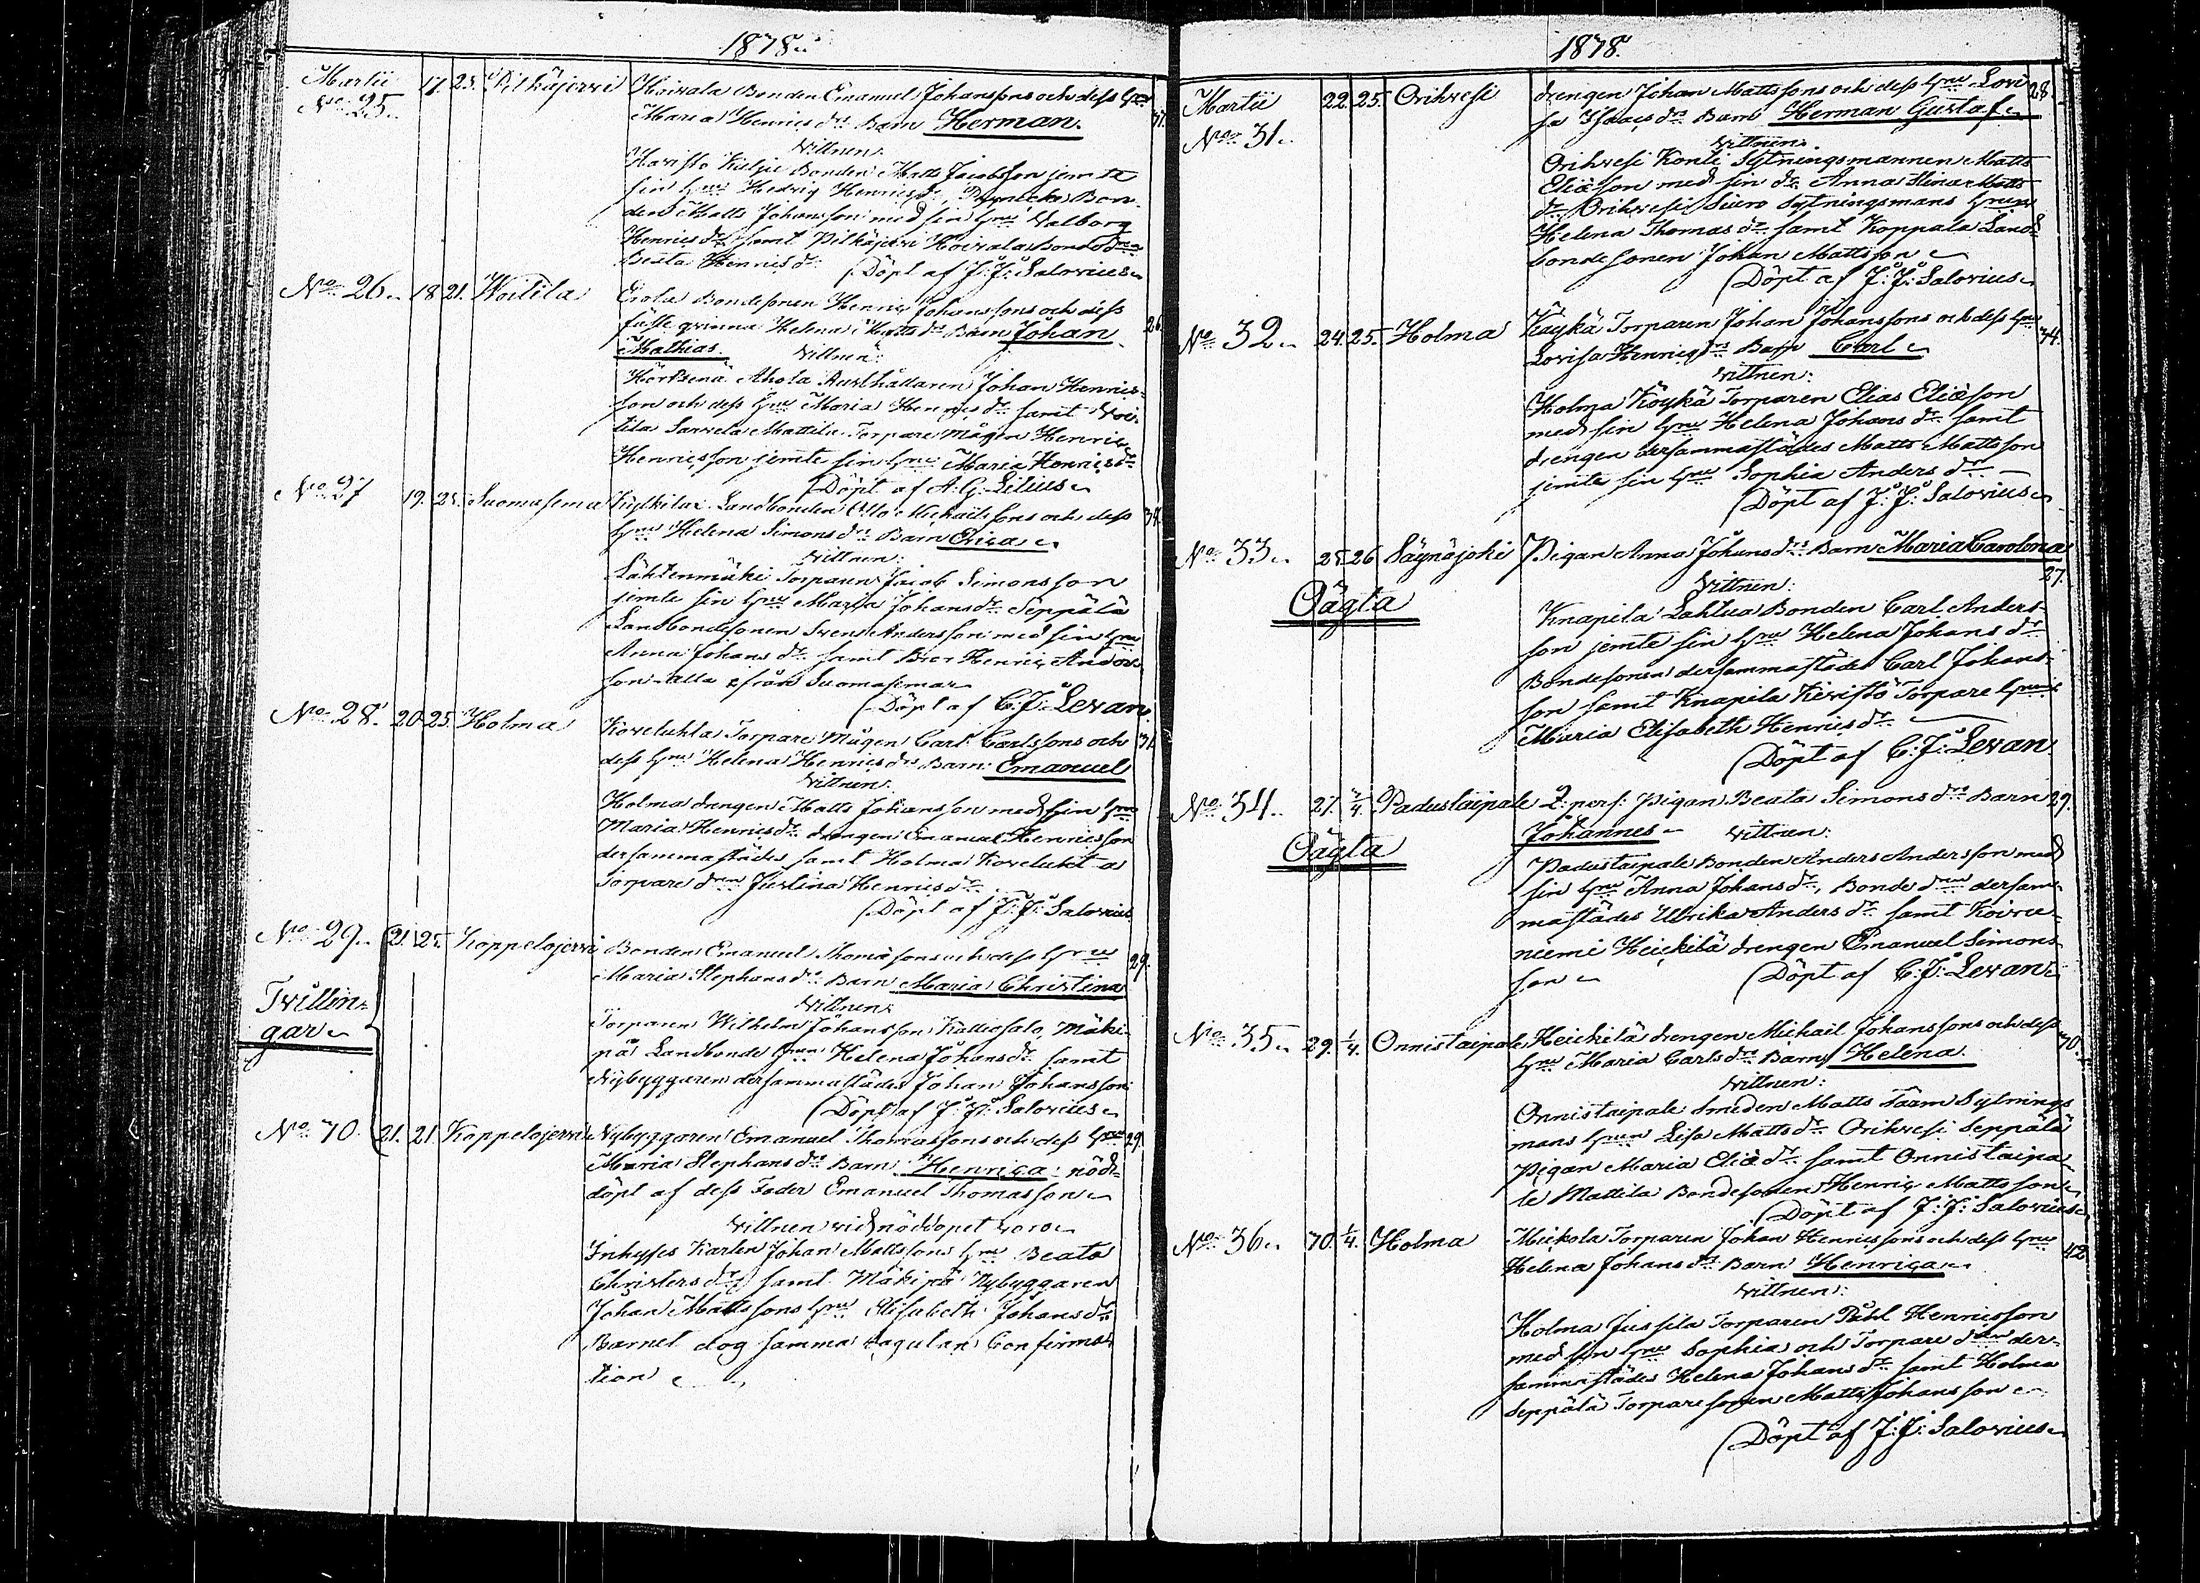 1878.
Martii 17. 25. Pitkäjerwi Hoivala Bonden Emanuel Johanssons och dess Hru 37.
No 25. Maria Henrics dr Barn Herman.
Vittnen:
Bonden Matts Jacobsson jemte
sin Hru Hedvig Henricsdr, Bon-
den Matts Johansson med sin Hru Valborg
Henricsdr samt Pitkäjerwi Hoivala Bondedrn
Beata Henricsdr. Döpt af J. J. Salovius
No 26. 18 21. Woitila Erola Bondesonen Henric Johanssons och dess 26.
fäste qvinna Helena Matts dr Barn Johan
Mathias. Vittnen:
Ahola Rusthållaren Johan Henrics-
son och dess Hru Maria Henrics dr samt Woi-
tila Mattila Torpare Mågen Henric
Henricsson jemte sin Hru Maria Henricsdr
Döpt af A. G. Lilius
No 27 19. 25. Suomasema Landbonden Otto Michailssons och dess 34.
Hru Helena Simons dr Barn Erica
Vittnen:
Lähtenmäki Torparen Jacob Simonsson
jemte sin Hru Maria Johansdr Seppälä
Landbondesonen Sven Andersson med sin Hru
Anna Johans dr samt Henric Anders-
son alla från Suomasema
Döpt af C. J. Levan.
No 28. 20 25. Holma Koveluhta Torpare Mågen Carl Carlssons och 31.
dess Hru Helena Henrics drs Barn Emanuel
Vittnen:
Holma drengen Matts Johansson med sin Hru
Maria Henricsdr drengen Emanuel Henricsson
dersammastädes samt Holma Koveluhta
Torpare drn Justina Henricsdr
Döpt af J. J. Salovius
No 29. 21. 25. Koppelojerwi Bonden Emanuel Thomassons och dess Hru 29.
Maria Stephans drs Barn Maria Christina
Tvillin- Vittnen:
gar Torparen Wilhelm Johansson Kalliosalo, Mäki-
pä Landbonde Hrun Helena Johansdr samt
Nybyggaren dersammastädes Johan Johansson
Döpt af J. J. Salovius
No 70. 21. 21. Koppelojerwi Nybyggaren Emanuel Thomassons och dess Hru 29.
Maria Stephans drs Barn Henrica nöd-
döpt af dess Fader Emanuel Thomasson
Vittnen vid nöddopet voro
Inhyses Karlen Johan Mattssons Hru Beata
Christersdr samt Mäkipä Nybyggaren
Johan Mattssons Hru Elisabeth Johansdr
Barnet dog samma dag utan Confirma-
tion
1878.
Martii 22. 25. Orihvesi drengen Johan Mattssons och dess Hru Lovi- 28.
No 31. sa Isaacs drs Barn Herman Gustaf
Vittnen:
Orihvesi Konti Sytningsmannen Matts
Eliasson med sin dr Anna Stina Matts
dr Orihvesi Sytningsmans Hrun
Helena Thomas dr samt Koppala Land-
bondesonen Johan Mattsson
Döpt af J. J. Salovius
No 32. 24. 25. Holma Köykä Torparen Johan Johanssons och dess Hru 34.
Lovisa Henrics drs Barn Carl
Vittnen:
Holma Köykä Torparen Elias Eliasson
med sin Hru Helena Johans dr samt
drengen dersammastädes Matts Mattsson
jemte sin Hru Sophia Anders dr
Döpt af J. J. Salovius
No 33. 25. 26. Säynäjoki Pigan Anna Johans drs Barn Maria Carolina
27.
Oägta Vittnen:
Knapila Lahtua Bonden Carl Anders-
son jemte sin Hru Helena Johans dr
Bondesonen dersammastädes Carl Johans-
son samt Knapila Torpare Hrun
Maria Elisabeth Henricsdr
Döpt af C. J. Levan
No 34. 27. 2/4. Padustaipale 2. pers. Pigan Beata Simons drs Barn 29.
Johannes Vittnen:
Oägta Padustaipale Bonden Anders Andersson med
sin Hru Anna Johans dr, Bonde drn dersam-
mastädes Ulrika Anders dr samt Koivu-
niemi Heickilä drengen Emanuel Simons-
son Döpt af C. J. Levan
No 35. 29. 1/4. Onnistaipale Heickilä drengen Michail Johanssons och dess 70.
Hru Maria Carls drs Barn Helena.
Vittnen:
Onnistaipale Smeden Matts Sytnings
mans Hrun Lisa Mattsdr Orihvesi Seppälä
Pigan Maria Elias dr samt Onnistaipa-
le Mattila Bondesonen Henric Mattsson
Döpt af J. J. Salovius
No 36. 70. 1/4. Holma Mickola Torparen Johan Henricssons och dess Hru 42
Helena Johans drs Barn Henrica
Vittnen:
Holma Jussila Torparen Påhl Henricsson
med sin Hru Sophia och Torpare drn der-
sammastädes Helena Johans dr samt Holma
Seppälä Torpare sonen Matts Johansson
Döpt af J. J. Salovius